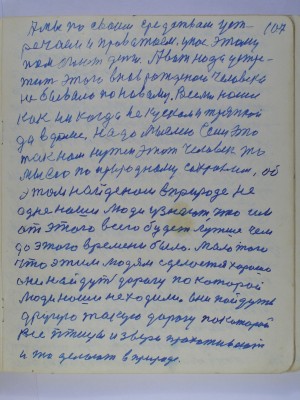 А мы по своим средствам уст-
речаем и провожаем. у нас этому 107
том дети. А вот надо устре-
тит этого вновь рожденого человека
не бывало по новому. Всем ноши
как никогда не куском и тряпкой
да в доме. Надо мысли Если это
так нам нужен этот человек то
мы его по природному сохраним, об
этом найденом в природе не
одне наши люди узнают что им
от этого всего будет лучше чем
до этого время было. Мало того
что этим людям сделается хорошо
они найдут дорогу по которой
люди наши не ходили. они найдут
другую такую дорогу по которой
все птицы и звери проживают
и то делают в природе.